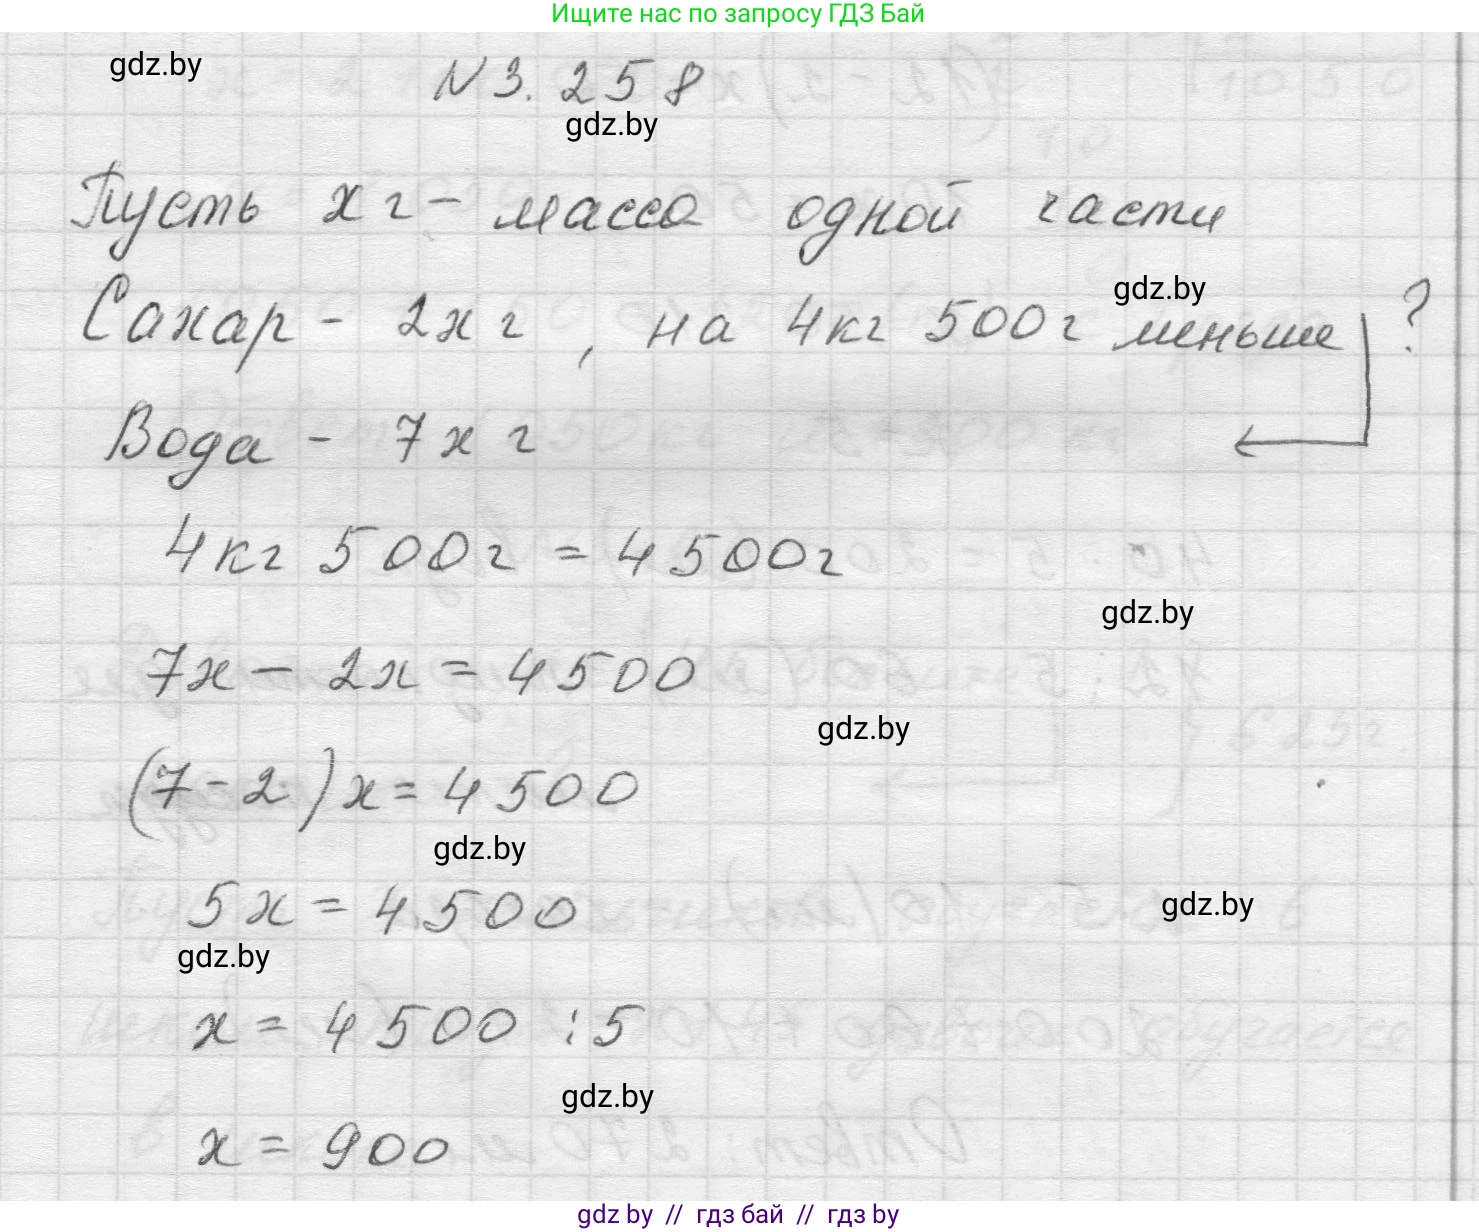 Ищите нас по запросу ГДЗ Бай
gdz.by
N 3.258
gdz.by
Пусть х г - масса одной части
gdz.by
Сахар - 2х г, на 4кг 500г меньше ?
Вода - 7х г
4кг 500г = 4500г
gdz.by
7х - 2х = 4500
gdz.by
(7-2)х = 4500
gdz.by
5х = 4500
gdz.by
gdz.by
х = 4500 : 5
gdz.by
х = 900
gdz by // гдз бай // гдз by